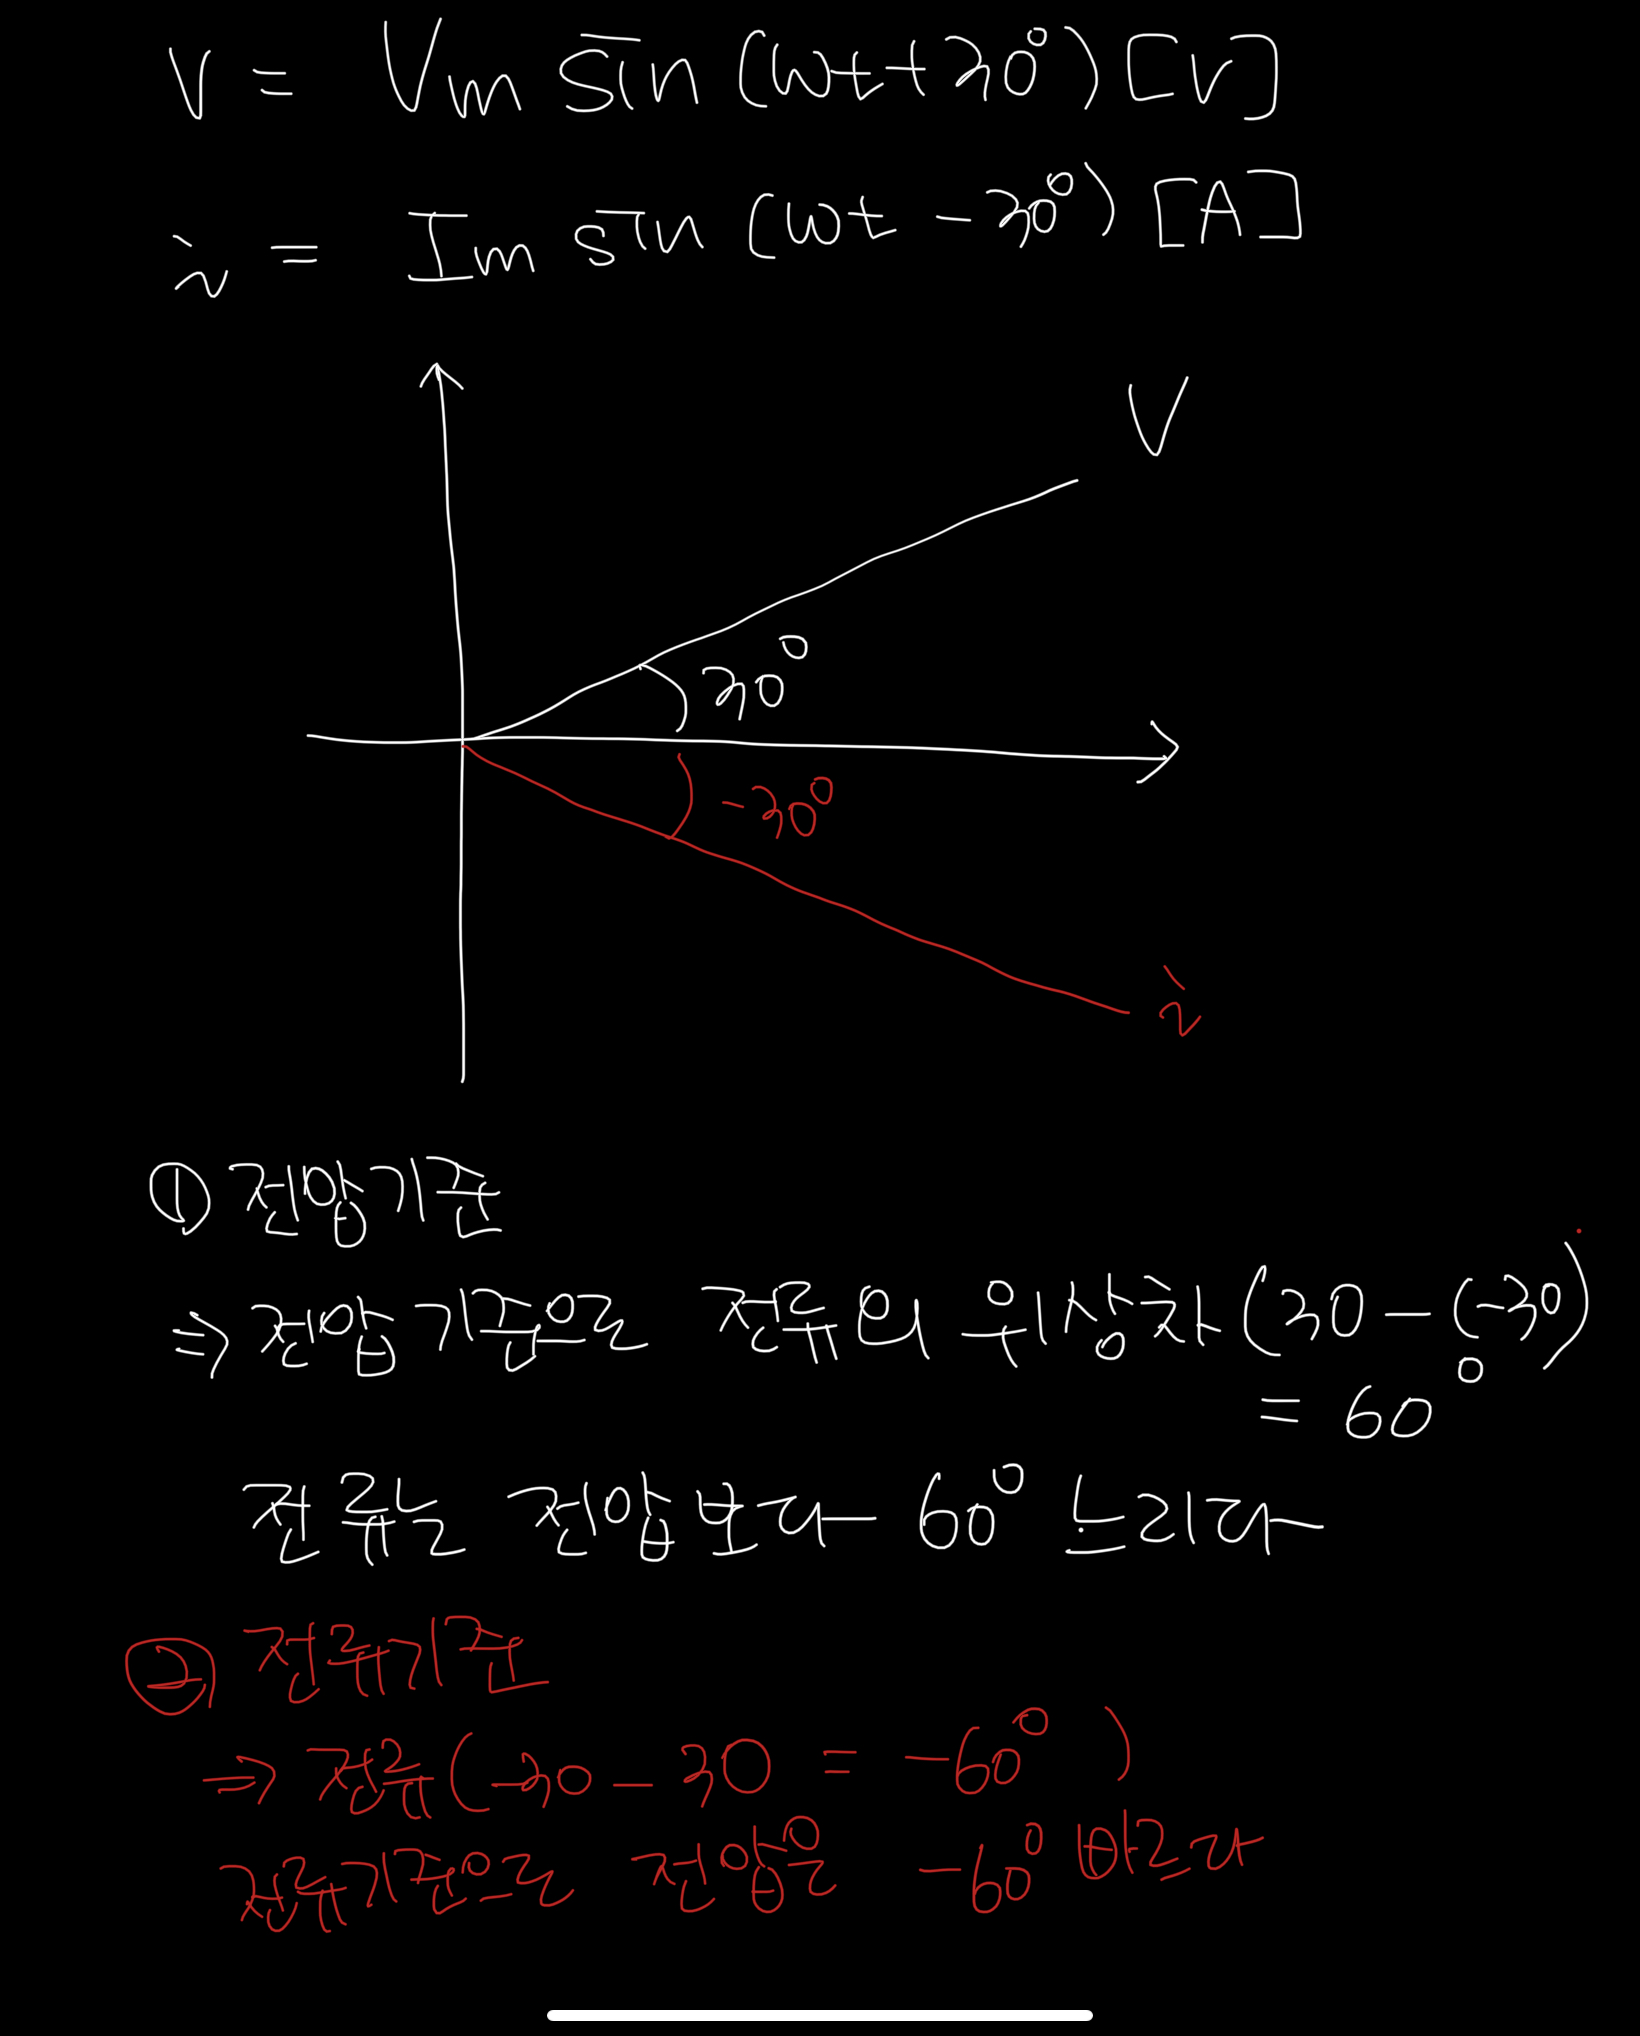 V = Vm sin (ωt+30°) [V]
i = Im sin (ωt - 30°) [A]
V
30°
-30°
i
① 전압기준
⇒ 전압기준으로 전류의 위상차 (30 - (-30)
= 60°
전류는 전압보다 60° 느리다
② 전류기준
⇒ 전류 (-30 - 30 = -60°)
전류기준으로 전압은 -60° 빠르다